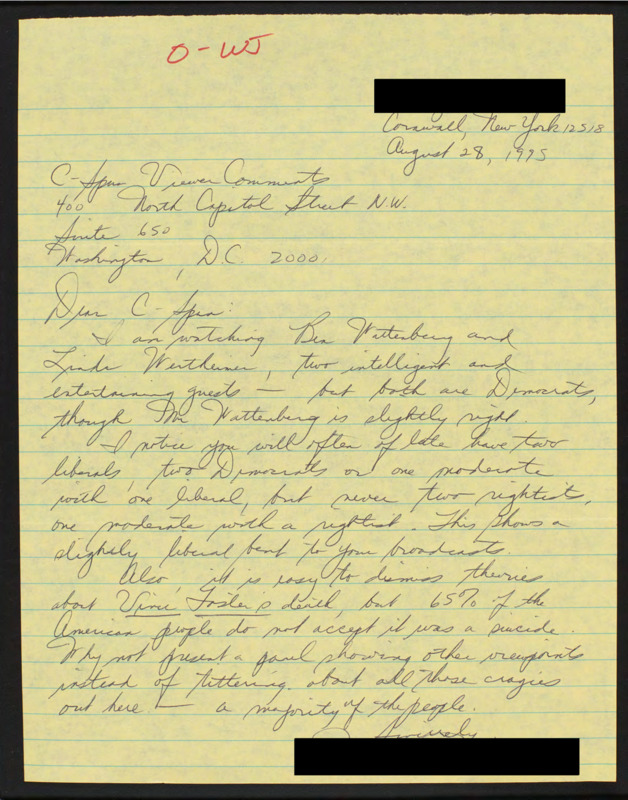 O-WJ
Cornwall, New York 12518
August 28, 1995
C-Span Viewer Comments
400 North Capitol Street N.W.
Suite 650
Washington, D.C. 2000
Dear C-Span:
I am watching Ben Wattenberg and
Linda Wertheimer, two intelligent and
entertaining guests — but both are Democrats,
though Mr Wattenberg is slightly right.
I notice you will often of late have two
liberals, two Democrats or one moderate
with one liberal, but never two rightists,
one moderate with a rightist. This shows a
slightly liberal bent to your broadcasts.
Also, it is easy to dismiss theories
about Vince Foster's death, but 65% of the
American people do not accept it was a suicide.
Why not present a panel showing other viewpoints
instead of tittering about all those crazies
out here — a majority of the people.
Sincerely,